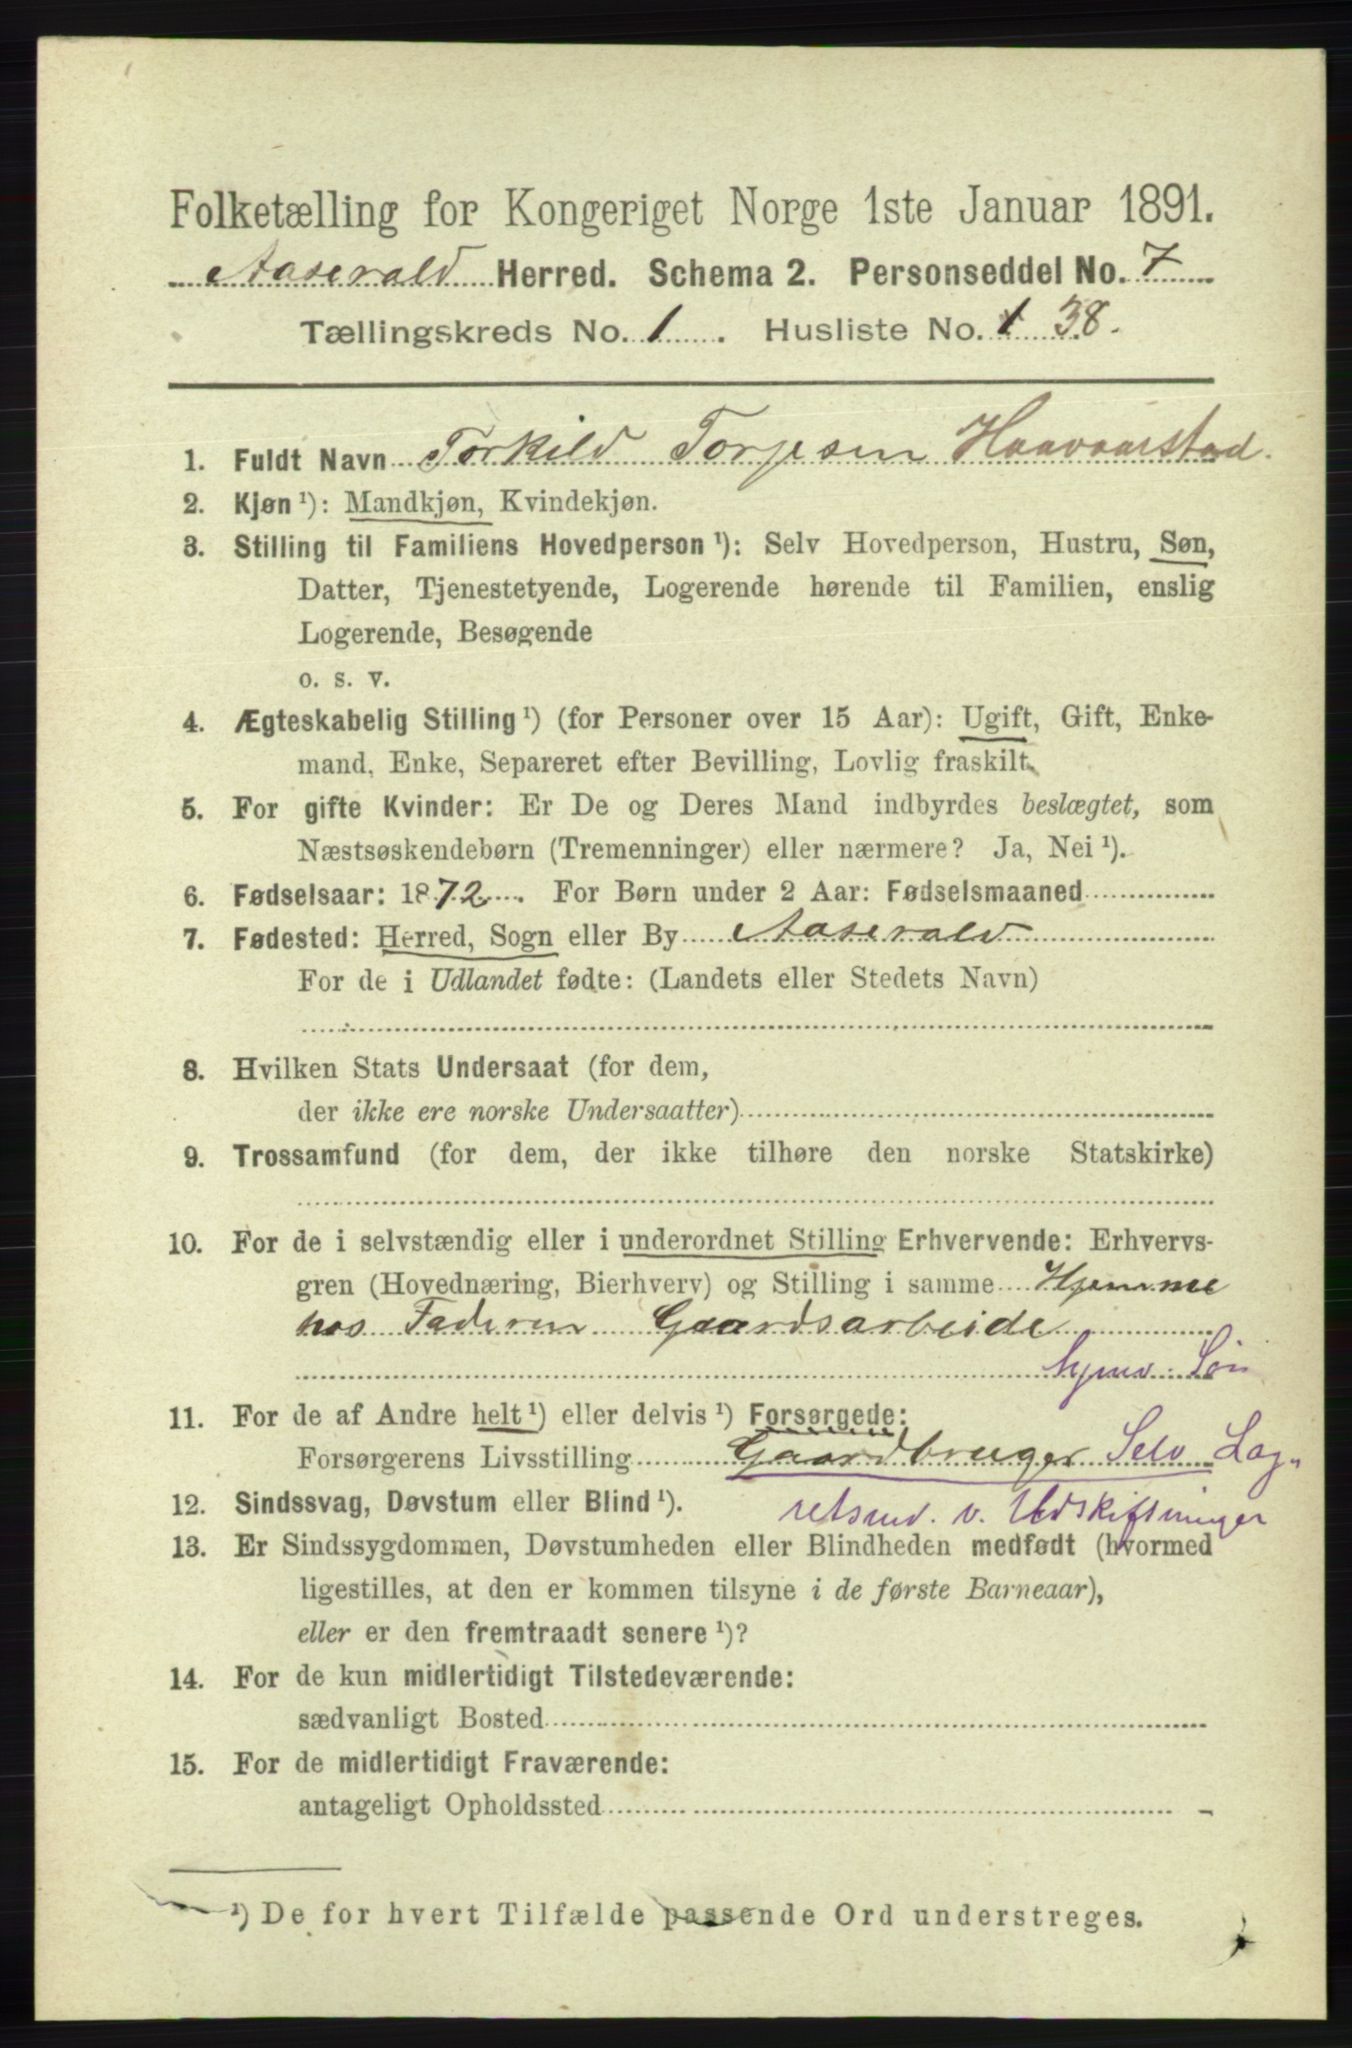 Folketælling for Kongeriget Norge 1ste Januar 1891.
Aaserald Herred. Schema 2. Personseddel No. 7
Tællingskreds No. 1. Husliste No. 1 38.
1. Fuldt Navn Torkild Torjesen Haavaarstad.
2. Kjøn ¹): Mandkjøn, Kvindekjøn.
3. Stilling til Familiens Hovedperson ¹): Selv Hovedperson, Hustru, Søn,
Datter, Tjenestetyende, Logerende hørende til Familien, enslig
Logerende, Besøgende
o. s. v.
4. Ægteskabelig Stilling ¹) (for Personer over 15 Aar): Ugift, Gift, Enke-
mand, Enke, Separeret efter Bevilling, Lovlig fraskilt.
5. For gifte Kvinder: Er De og Deres Mand indbyrdes beslægtet, som
Næstsøskendebørn (Tremenninger) eller nærmere? Ja, Nei ¹).
6. Fødselsaar: 1872. For Børn under 2 Aar: Fødselsmaaned
7. Fødested: Herred, Sogn eller By Aaserald
For de i Udlandet fødte: (Landets eller Stedets Navn)
8. Hvilken Stats Undersaat (for dem,
der ikke ere norske Undersaatter)
9. Trossamfund (for dem, der ikke tilhøre den norske Statskirke)
10. For de i selvstændig eller i underordnet Stilling Erhvervende: Erhvervs-
gren (Hovednæring, Bierhverv) og Stilling i samme Hjemme
hos Faderen Gaardsarbeide
hjmv. Søn
11. For de af Andre helt ¹) eller delvis ¹) Forsørgede:
Forsørgerens Livsstilling Gaardbruger Selv Lag-
12. Sindssvag, Døvstum eller Blind ¹). retsmd. v. Udskiftninger
13. Er Sindssygdommen, Døvstumheden eller Blindheden medfødt (hvormed
ligestilles, at den er kommen tilsyne i de første Barneaar),
eller er den fremtraadt senere ¹)?
14. For de kun midlertidigt Tilstedeværende:
sædvanligt Bosted
15. For de midlertidigt Fraværende:
antageligt Opholdssted
¹) De for hvert Tilfælde passende Ord understreges.